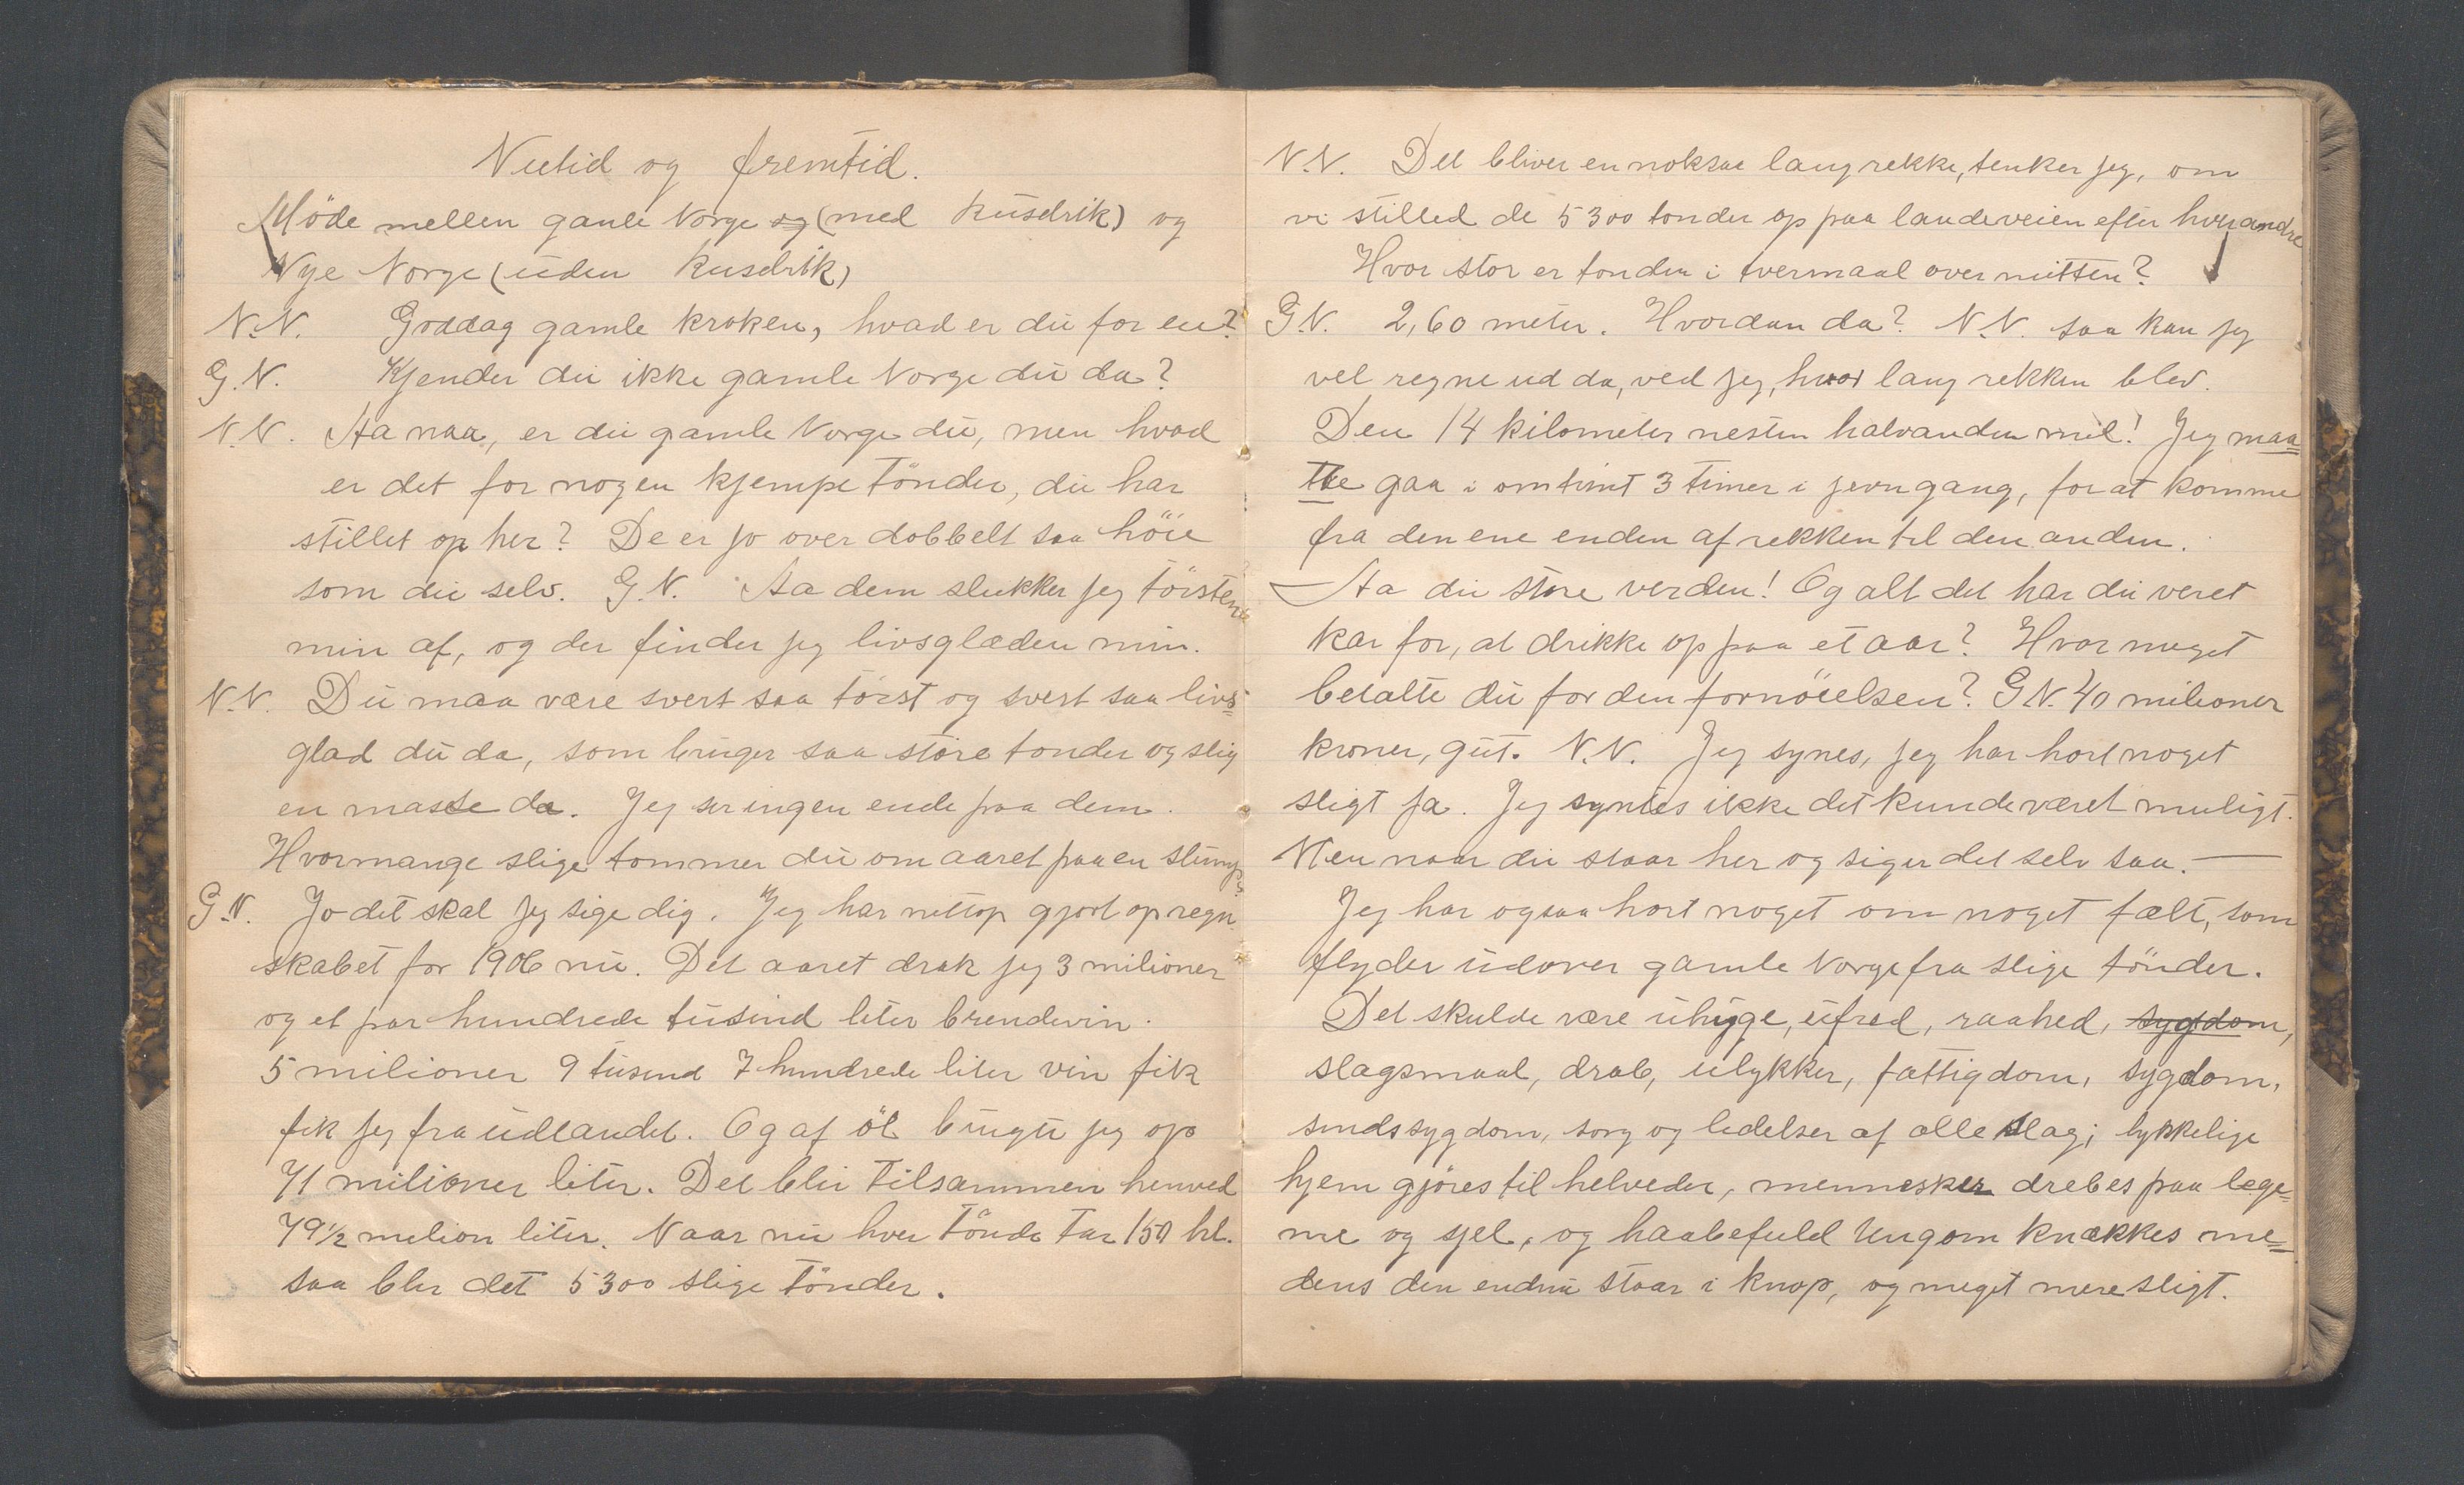 Nutid og fremtid.
Möde mellen gamle Norge og (med Rusdrik) og
Nye Norge (uden Rusdrik)
N.N. Goddag gamle kroken, hvad er du for en?
G.N. Kjender du ikke gamle Norge du da?
N.N. Aa naa, er du gamle Norge du, men hvad
er det for nogen kjempe tönder, du har
stillet op her? De er jo over dobbelt saa höie
som du selv. G.N. Aa dem slukker jeg törsten
min af, og der finder jeg livsglæden min.
N.N. Du maa være svert saa törst og svert saa livs-
glad du da, som bruger saa store tonder og slig
en masse da. Jeg ser ingen ende paa dem.
Hvormange slige tommer du om aaret paa en slump?
G.N. Jo det skal jeg sige dig. Jeg har nettop gjort op regn
skabet for 1906 nu. Det aaret drak jeg 3 milioner
og et par hundrede tusind liter brendevin.
5 milioner 9 tusend 7 hundrede liter vin fik
fik jeg fra udlandet. Og af öl brugte jeg op
71 milioner liter. Det blir tilsammen henved
79½ melion liter. Naar nu hver tönde tar 150 hl.
saa blir det 5300 slige tönder.
N.N. Det bliver en noksaa lang rekke, tenker jeg, om
vi stilled de 5300 tonder op paa landeveien efter hverandre
Hvor stor er tonden i tvermaal over mitten?
G.N. 2,60 meter. Hvordan da? N.N. saa kan jeg
vel regne ud da, ved jeg, hvor lang rekken blev.
Den 14 kilometer nesten halvanden mil! Jeg maa
tte gaa i omtrint 3 timer i jevn gang, for at komme
fra den ene enden af rekken til den anden.
Aa du store verden! Og alt det har du veret
kar for, at drikke op paa et aar? Hvor meget
betalte du for den fornöielsen? G.N. 40 milioner
kroner, gut. N.N. Jeg synes, jeg har hort noget
sligt ja. Jeg syntes ikke det kunde været muligt.
Men naar du staar her og siger det selv saa. —
Jeg har ogsaa hort noget om noget fælt, som
flyder udover gamle Norge fra slige tönder.
Det skulde være uhyge, ufred, raahed, sygdom,
slagsmaal, drab, ulykker, fattigdom, sygdom,
sindssygdom, sorg og lidelser af alle slag; lykkelige
hjem gjöres til helveder, mennesker drebes paa lege-
me og sjel, og haabefuld Ungom knækkes me-
dens den endnu staar i knop, og meget mere sligt.